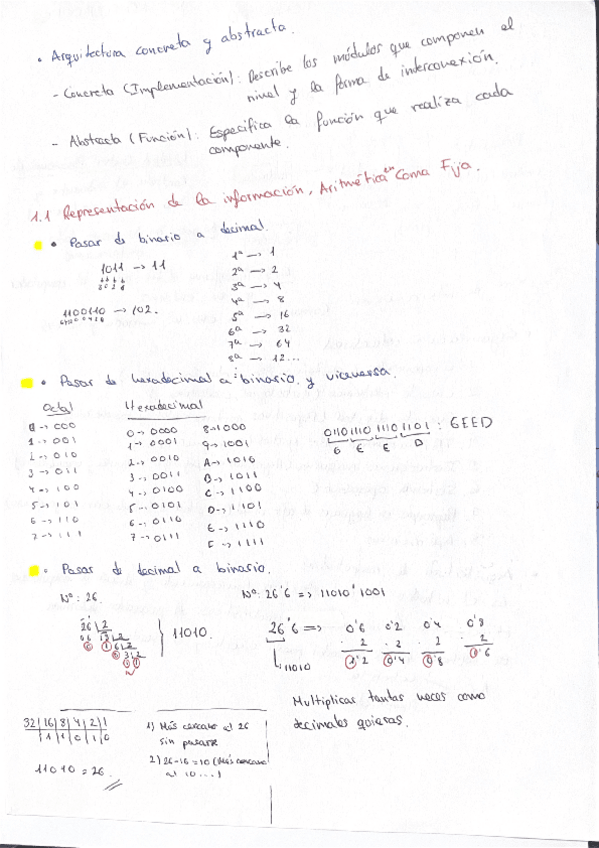 • Arquitectura concreta y abstracta.
- Concreta (Implementación): Describe los módulos que componen el
nivel y la forma de interconexión.
- Abstracta (Función): Especifica la función que realiza cada
componente.
1.1 Representación de la información, Aritmética en Coma Fija.
• Pasar de binario a decimal.
1011 -> 11
1100110 -> 102.
1ª -> 1
2ª -> 2
3ª -> 4
4ª -> 8
5ª -> 16
6ª -> 32
7ª -> 64
8ª -> 12...
• Pasar de hexadecimal a binario y viceversa.
Octal
0 -> 000
1 -> 001
2 -> 010
3 -> 011
4 -> 100
5 -> 101
6 -> 110
7 -> 111
Hexadecimal
0 -> 0000
1 -> 0001
2 -> 0010
3 -> 0011
4 -> 0100
5 -> 0101
6 -> 0110
7 -> 0111
8 -> 1000
9 -> 1001
A -> 1010
B -> 1011
C -> 1100
D -> 1101
E -> 1110
F -> 1111
0110 1110 1110 1101 : 6EED
6 E E D
• Pasar de decimal a binario.
Nº: 26
26 | 2
} 11010.
Nº: 26'6 => 11010'1001
26'6 =>
11010
0'6 0'2 0'4 0'8
2 · 2 · 2 2
1'2 0'4 0'8 1'6
Multiplicar tantas veces como
decimales quieras.
32|16|8|4|2|1
1|1|0|1|0
11010 = 26.
1) Más cercano al 26
sin pasarse
2) 26-16=10 (Más cercano
al 10 ...)